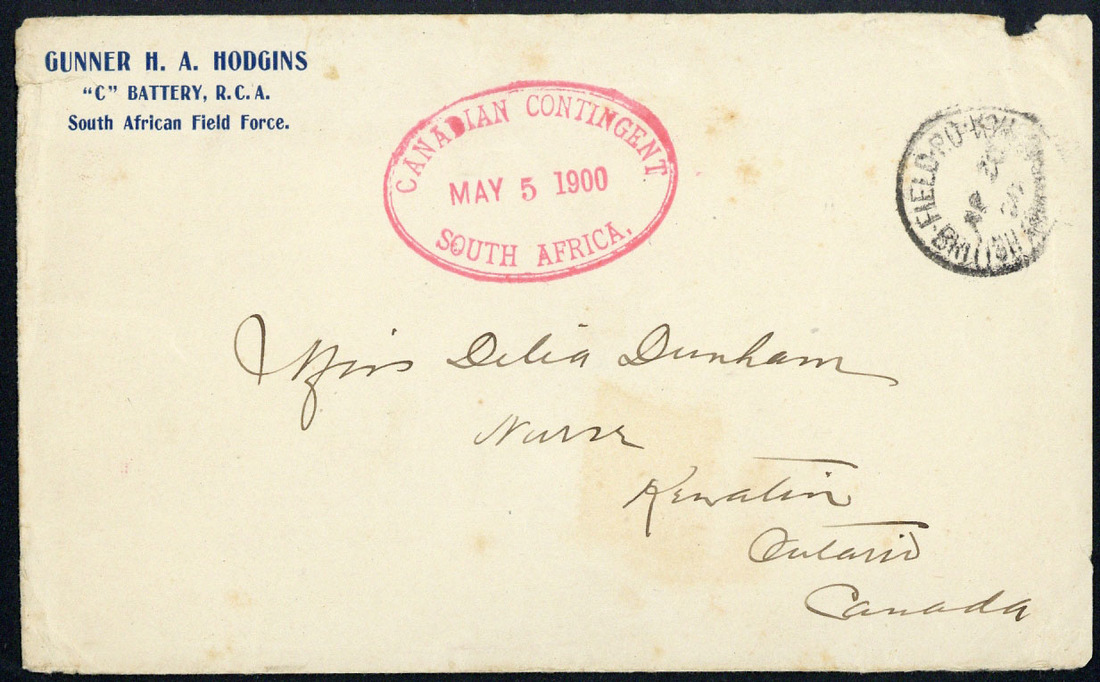 GUNNER H. A. HODGINS
"C" BATTERY, R. C. A.
South African Field Force.
CANADIAN CONTINGENT
MAY 5 1900
SOUTH AFRICA.
FIELD·PO·
BRITISH
Miss Delia Dunham
Nurse
Kewatin
Ontario
Canada